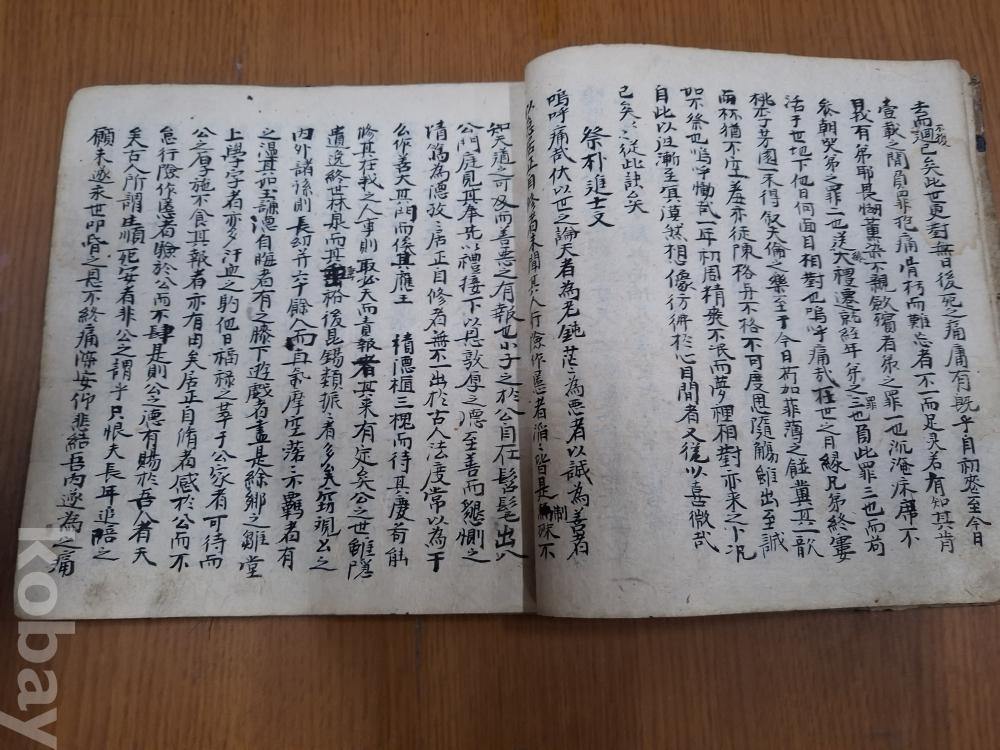 去而不復
迴已矣此世更對無日後死之痛庸有旣乎自初葬至今日
壹載之間負罪抱痛骨朽而難忘者不一而足兄若有知其肯
我有弟耶畏慽薰染不親斂殯有弟之罪一也沉淹床席不
參朝哭弟之罪二也送大禮遷就經年弟之罪三也負此罪三也而苟
活于世地下他日何面目相對也嗚呼痛哉在世之日緣兄弟終窶
桃李芳園未得敍天倫之樂至于今日荷如菲薄之饎奠其一歆
兩杯猶不空羞亦從陳格乎不格不可度思隨觴雖出至誠
如不祭也嗚呼慟哉耳初周精爽不泯而夢裡相對亦來之卜况
自此以徃漸至冥漠然相像彷彿於心目間者又從以喜微哉
已矣已矣從此訣矣
祭朴進士文
嗚呼痛哉伏以世之論天者為老鈍茫茫為惡者以誠為善者
以居正自修者未聞其人行險作慝者滔滔皆是為殊不
知天道之可畏而善惡之有報也小子之於公自在髫髦出入
公門庭見其奉先以禮接下以恩敦厚之德至善而懇惻之
情篤為德孜孜居正自修者無不一出於古人法度常以為于
公作善天其閏而倐其應王 積德樻三槐而待其慶苟能
修其在我之人事則取必天而責報者其來有定矣公之世雖隱
遺逸終世林泉而其裕後昆錫類振振者多矣窃覸公之
內外諸孫則長幼并六十餘人而直氣摩空落落不羈者有
之溫其如玉謙德自晦者有之膝下遊戱者盡是綠鄕之雛堂
上學字者亦多汗血之駒他日福祿之萃于公家者可待而
公之厚施不食其報者亦有由矣居正自修者感於公而不
怠行險作慝者驗於公而不肆是則公之德有賜於吾人者大
矣古人所謂生順死安者非公之謂乎只恨天長年追語之
願未遂末世叩昏之恳不終痛深安仰悲結吾丙遂為之痛
kobay